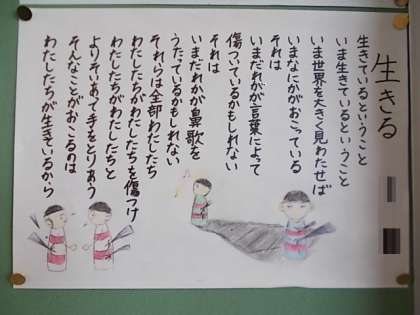 生きる
生きているということ
いま生きているということ
いま世界を大きく見わたせば
いまなにかがおこっている
それは
いまだれかが言葉によって
傷ついているかもしれない
それは
いまだれかが鼻歌を
うたっているかもしれない
それらは全部わたしたち
わたしたちがわたしたちを傷つけ
わたしたちがわたしたちと
よりそいあて手をとりあう
そんなことがおこるのは
わたしたちが生きているから